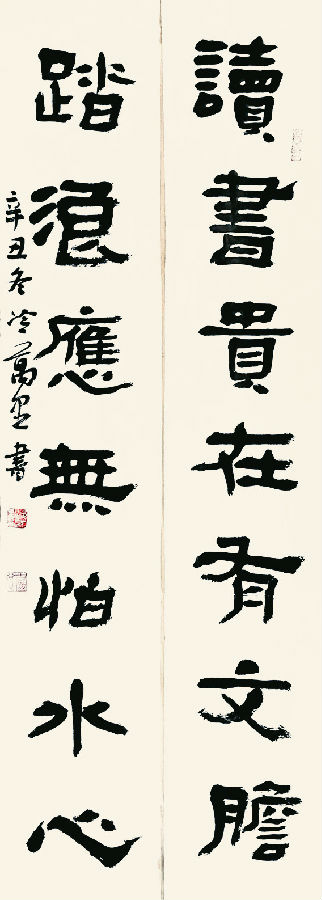 讀書貴在有文膽
踏浪應無怕水心
辛丑冬冷萬里書